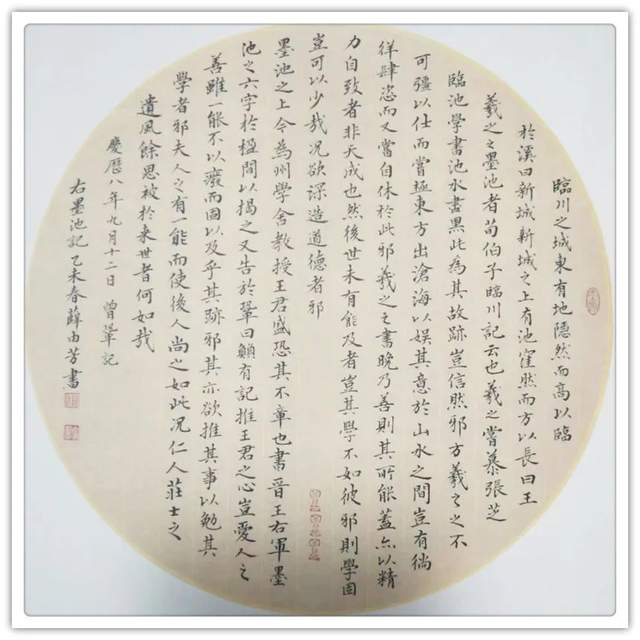 臨川之城東有地隱然而高以臨
於溪曰新城新城之上有池窪然而方以長曰王
羲之之墨池者荀伯子臨川記云也羲之嘗慕張芝
臨池學書池水盡黑此為其故跡豈信然邪方羲之之不
可彊以仕而嘗極東方出滄海以娛其意於山水之間豈有徜
徉肆恣而又嘗自休於此邪羲之之書晚乃善則其所能蓋亦以精
力自致者非天成也然後世未有能及者豈其學不如彼邪則學固
豈可以少哉況欲深造道德者邪
墨池之上今為州學舍教授王君盛恐其不章也書晉王右軍墨
池之六字於楹間以揭之又告於鞏曰願有記推王君之心豈愛人之
善雖一能不以廢而因以及乎其跡邪其亦欲推其事以勉其
學者邪夫人之有一能而使後人尚之如此況仁人莊士之
遺風餘思被於来世者何如哉
慶曆八年九月十二日 曾鞏記
右墨池記乙未春薛由芳書